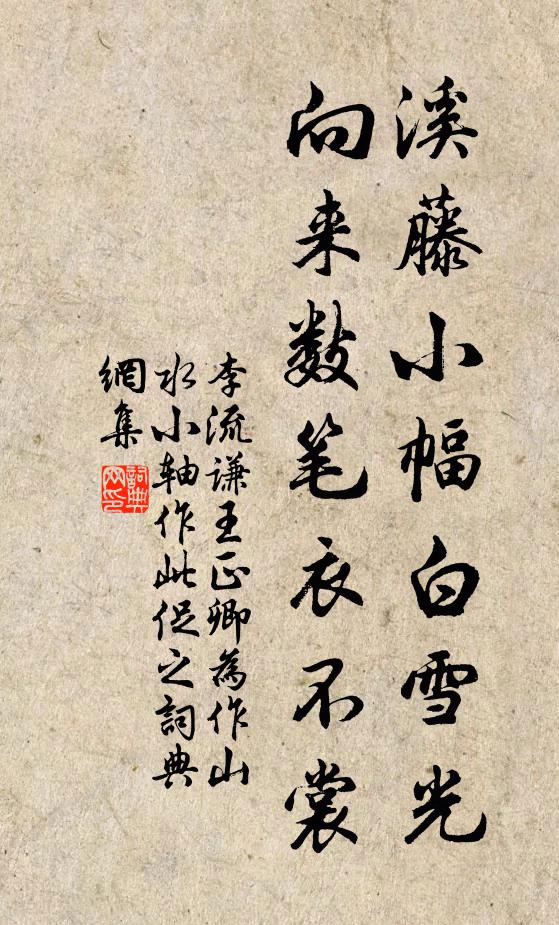 溪藤小幅白雪光
向来数笔衣不裳
李流謙王正卿為作山
水小轴作此促之詞典
網集
詞典
网印